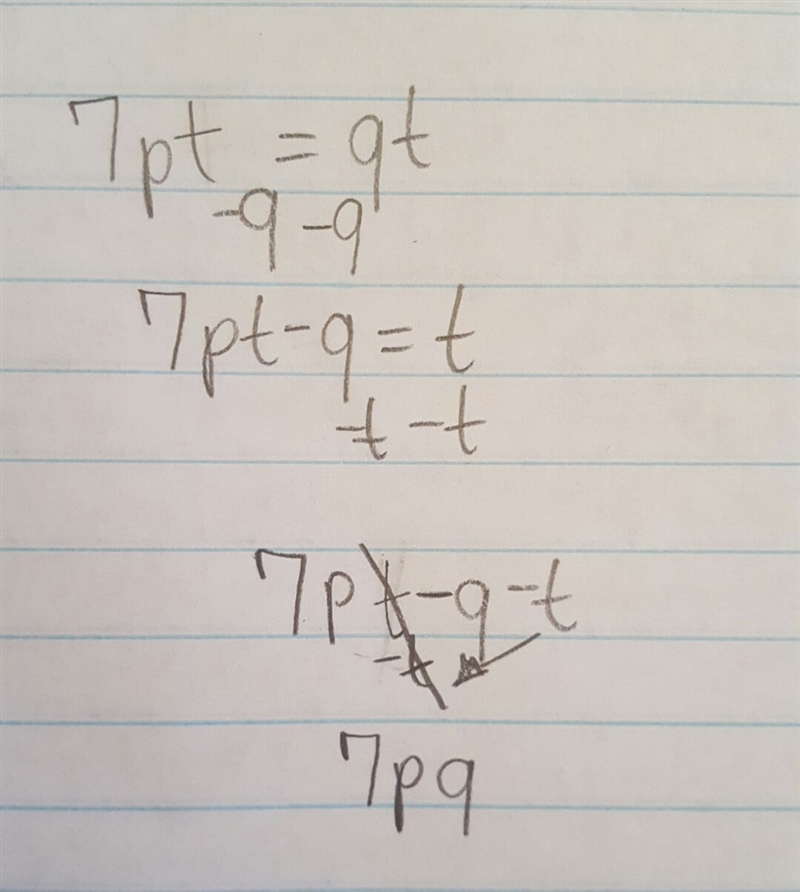 7pt = qt
-q -q
7pt-q=t
-t -t
7pt-q-t
-t
7pq